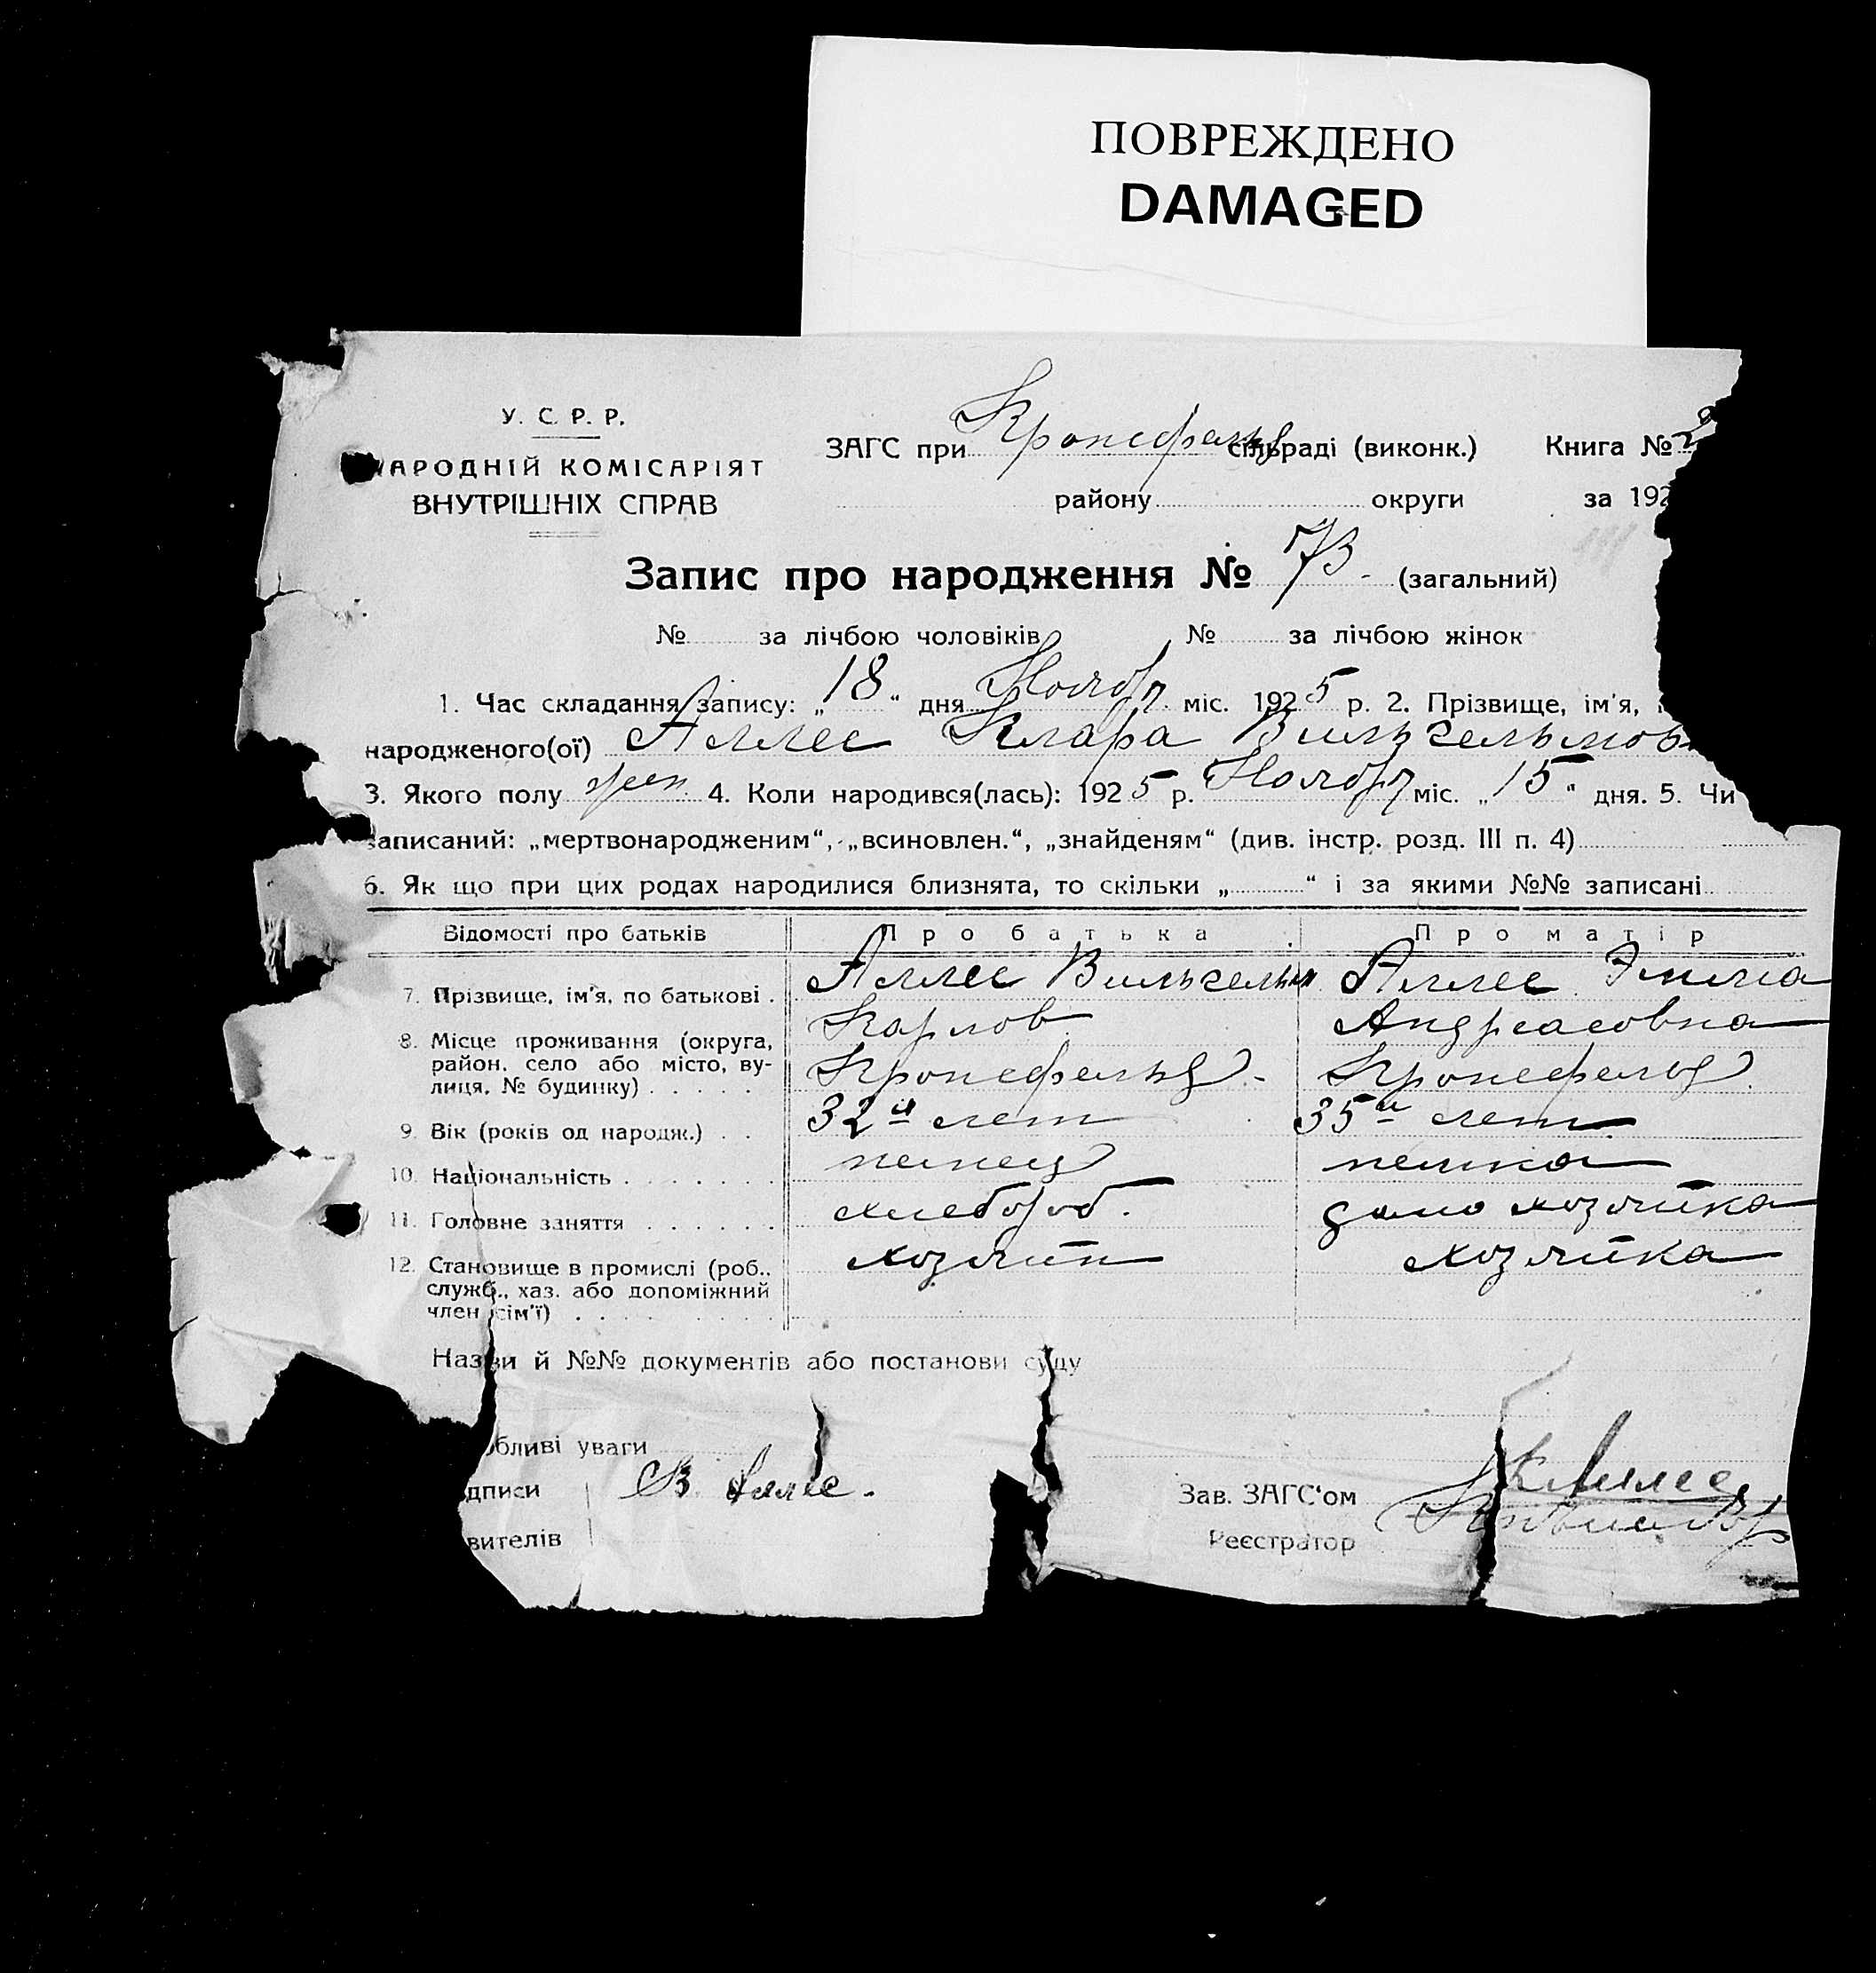 ПОВРЕЖДЕНО
DAMAGED
У. С. Р. Р.
НАРОДНІЙ КОМІСАРІЯТ
ВНУТРІШНІХ СПРАВ
ЗАГС при Кронсфельд сільраді (виконк.) Книга № 2
району округи за 192
Запис про народження № 73. (загальний)
№ за лічбою чоловіків № за лічбою жінок
1. Час складання запису: „18“ дня Ноябр міс. 1925 р. 2. Прізвище, ім'я,
народженого(ої) Аллес Клара Вильгельмов
3. Якого полу жен. 4. Коли народився(лась): 1925 р. Ноябр міс. „15“ дня. 5. Чи
записаний: „мертвонародженим“, „всиновлен.“, „знайденям“ (див. інстр. розд. III п. 4)
6. Як що при цих родах народилися близнята, то скільки „ “ і за якими №№ записані
Відомості про батьків Про батька Про матір
7. Прізвище, ім'я, по батькові . Аллес Вильгельм Аллес Эмма
Карлов Андреасовна
8. Місце проживання (округа,
район, село або місто, ву-
лиця, № будинку) . . . . . Кронсфельд. Кронсфельд.
9. Вік (років од народж.) . . 32и лет 35и лет
10. Національність . . . . . . . немец немка
11. Головне заняття . . . . . . хлебороб. домо хозяйка
12. Становище в промислі (роб., хозяин хозяйка
служб., хаз. або допоміжний
член сім'ї) . . . . . . . .
Назви й №№ документів або постанови суду
обливі уваги
дписи В Аллес.
вителів
Зав. ЗАГС'ом К Аллес
Реєстратор